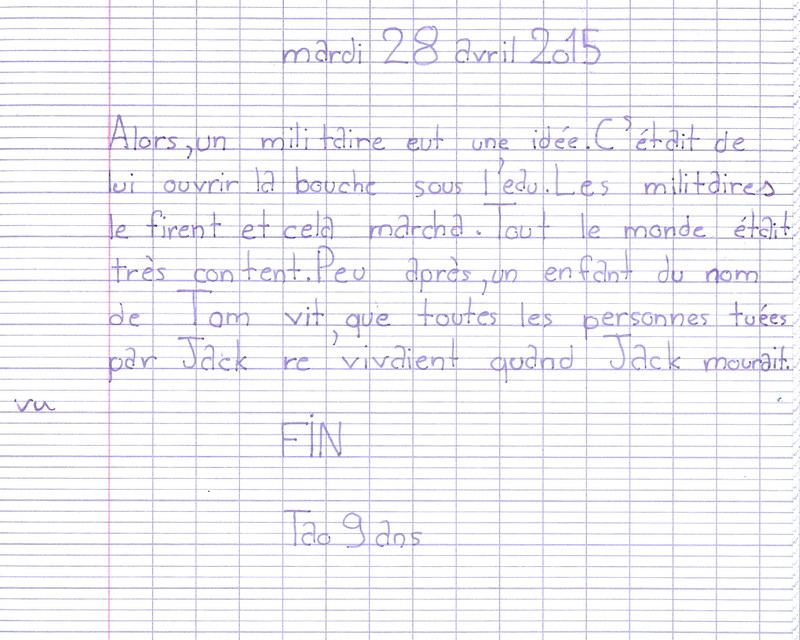 mardi 28 avril 2015
Alors, un militaire eut une idée. C'était de
lui ouvrir la bouche sous l'eau. Les militaires
le firent et cela marcha. Tout le monde était
très content. Peu après, un enfant du nom
de Tom vit, que toutes les personnes tuées
par Jack re vivaient quand Jack mourait.
vu
FIN
Tao 9 ans